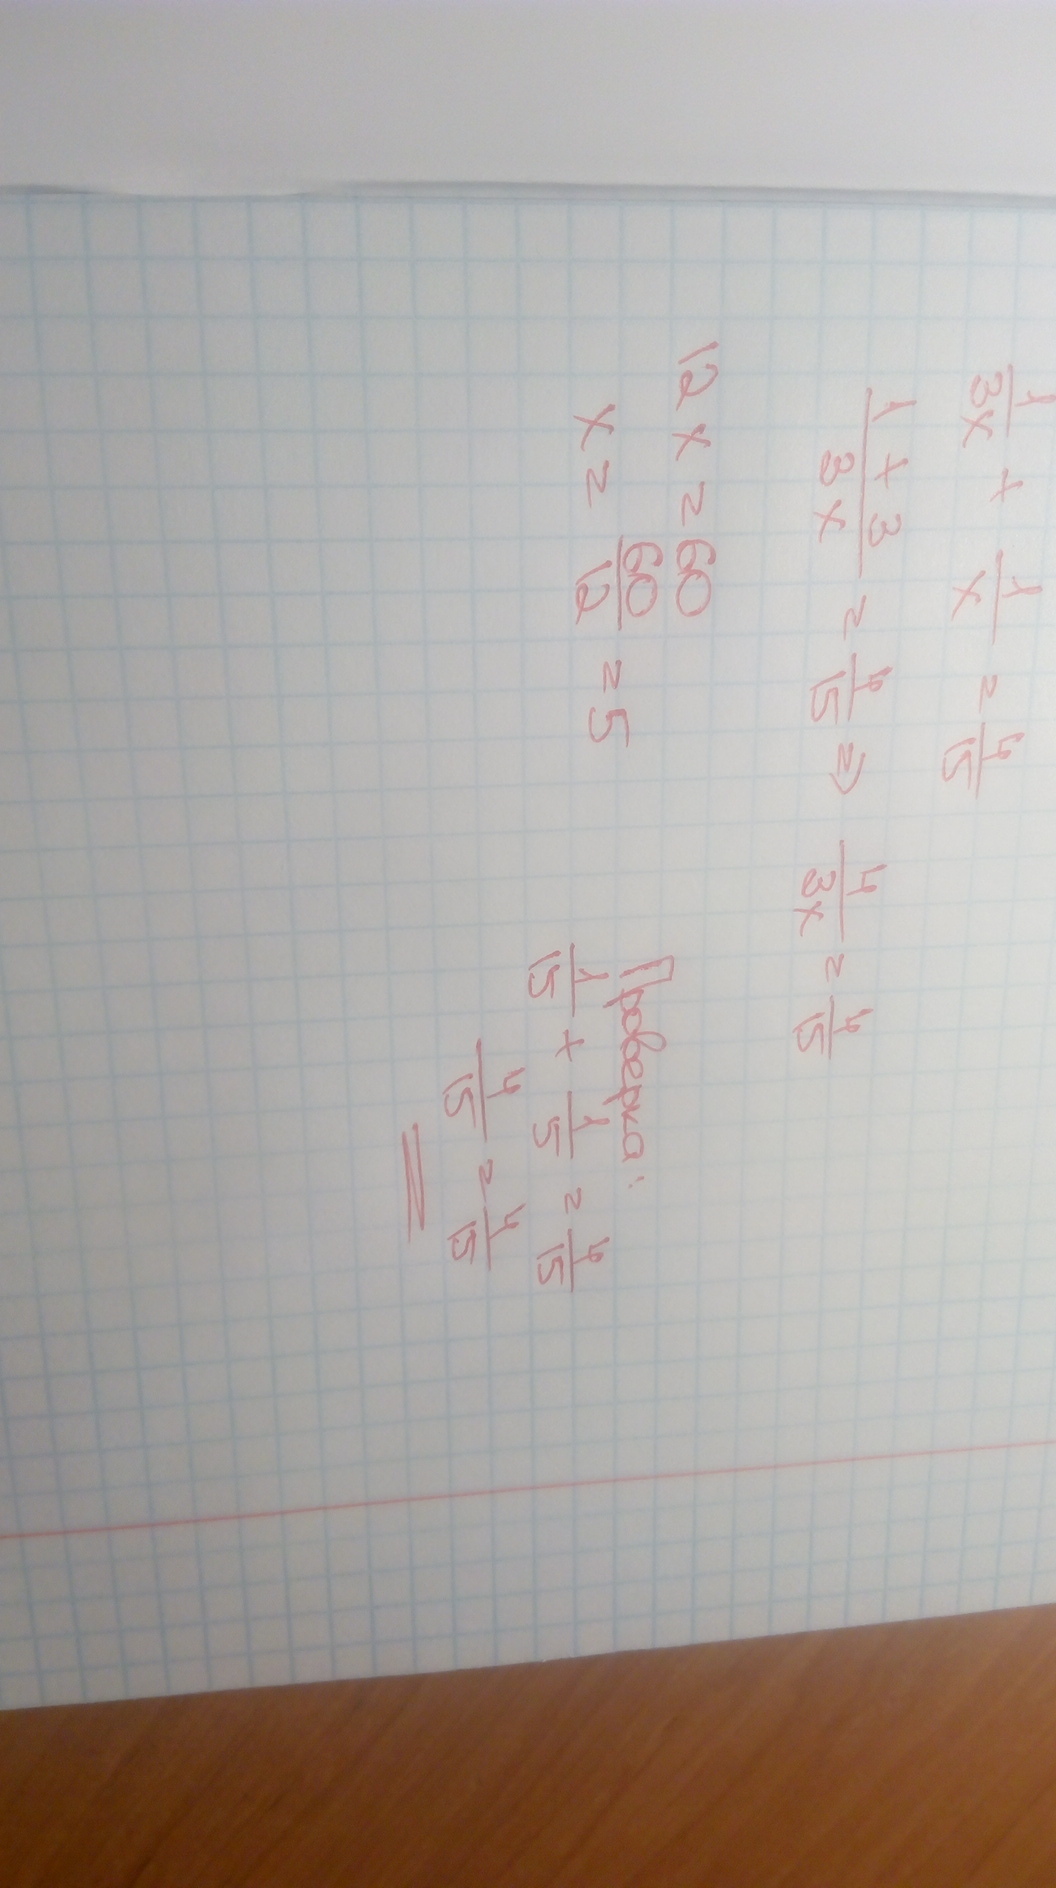 1/3x + 1/x = 4/15
1 + 3/3x = 4/15 => 4/3x = 4/15
12x = 60
x = 60/12 = 5
Проверка:
1/15 + 1/5 = 4/15
4/15 = 4/15